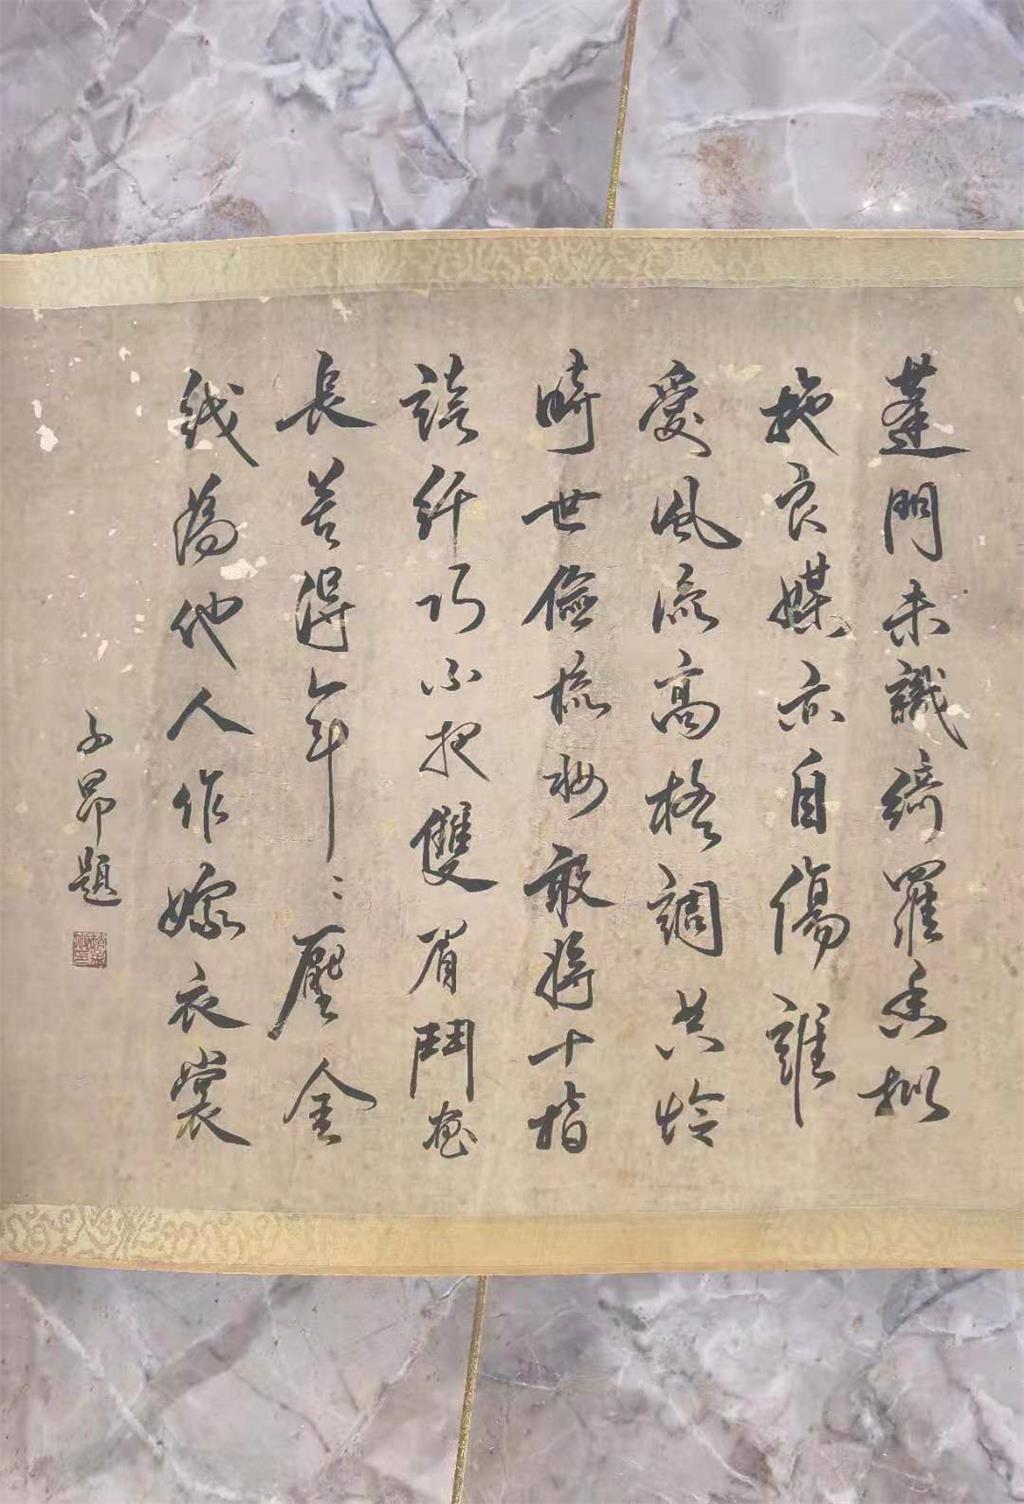 蓬門未識綺羅香拟
托良媒亦自傷誰
愛風流高格調共怜
時世儉梳妝敢將十指
誇纤巧不把雙眉鬥畫
長苦得年〻壓金
线為他人作嫁衣裳
子昂題